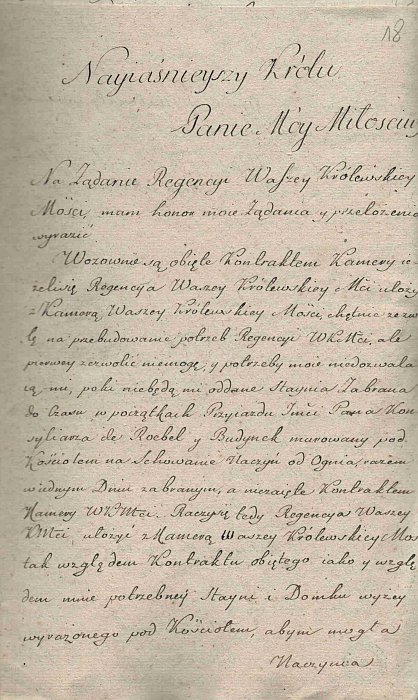 18
Nayiaśnieyszy Królu
Panie Móy Miłościwy
Na Żądanie Regencyi Waszey Królewskiey
Mości, mam honor moie Żądania y przełożenia
wyrazić
Wozownie są obięte Kontraktem Kamery ie-
żeli się Regencya Waszey Królewskiey Mści ułoży
z Kamerą Waszey Królewskiey Mości, chętnie zezwo
lę na przebudowanie potrzeb Regencyi WKMci, ale
pierwey zezwolić niemogę, y potrzeby moie niedozwala
ią mi, poki niebędą mi oddane Staynia Zabrana
do Czasu w początkach Przyiazdu Jmci Pana Kon
syliarza de Roebel y Budynek murowany pod
Kościołem na Schowanie Naczyń od Ognia, razem
w iednym Dniu zabranym, a niezaięte Kontraktem
Kamery WKMci. Raczysz tedy Regencya Waszey
KMci, ułożyć z Kamerą Waszey Królewskiey Mos
tak względem Kontraktu obiętego iako y wzglę
dem mnie potrzebney Stayni i Domku wyzey
wyrażonego pod Kościołem, abym mogła
Naczynia